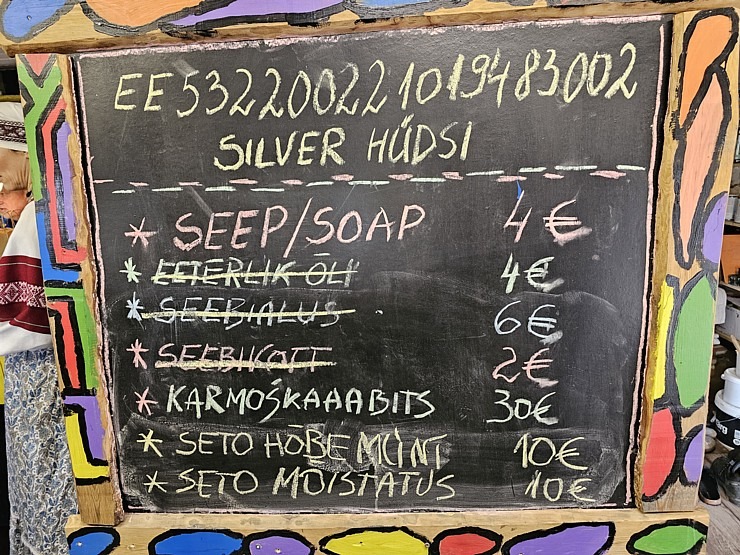 EE532200221019483002
SILVER HÜDSI
* SEEP/SOAP 4€
* EETERLIK ÕLI 4€
* SEEBIALUS 6€
* SEEBIKOTT 2€
* KARMOŠKAAABITS 30€
* SETO HÕBEMÜNT 10€
* SETO MÕISTATUS 10€